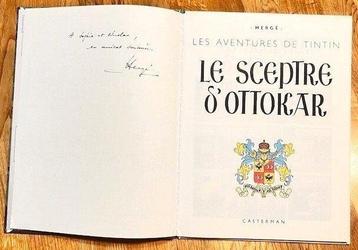 A Sophie et Nicolas,
en amical souvenir
Hergé
HERGÉ
LES AVENTURES DE TINTIN
LE SCEPTRE
D'OTTOKAR
CASTERMAN